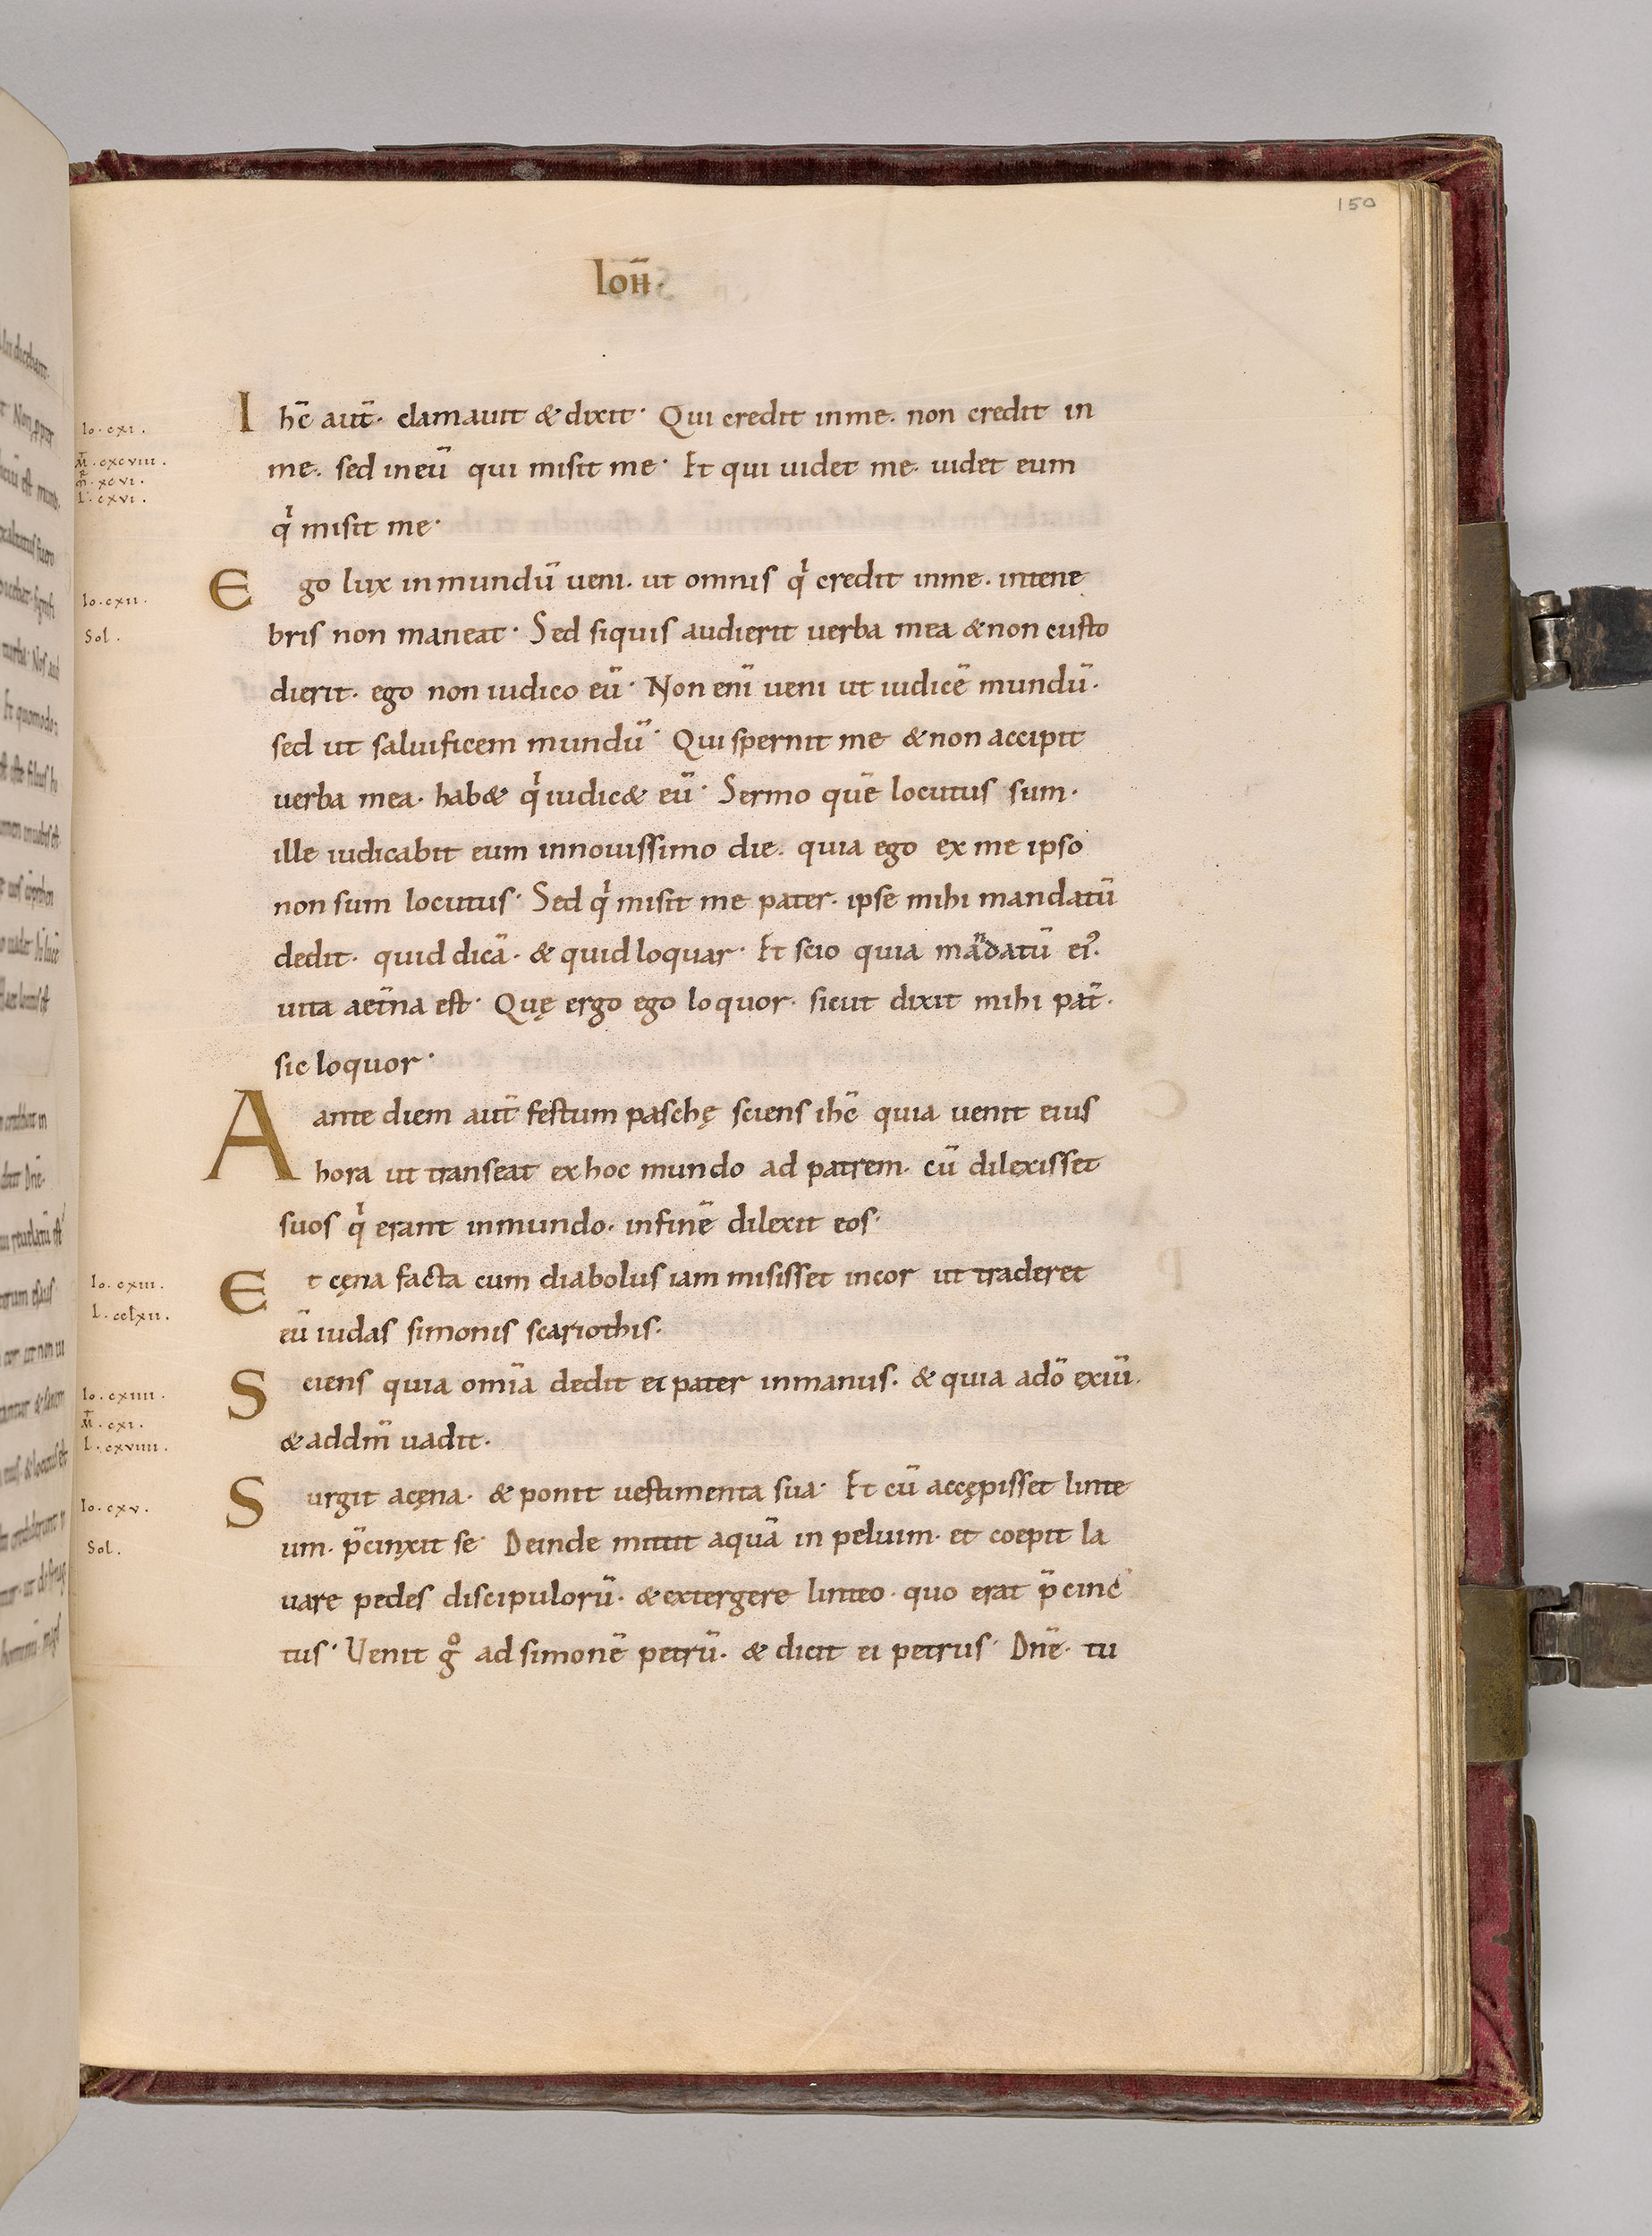 150
Ioħ.
Ihc̄ aut̄. clamauit & dixit. Qui credit inme. non credit in
Io. cxi.
me. sed ineū qui misit me. Et qui uidet me. uidet eum
M̄. cxcviii.
m̄R. xcvi.
L. cxvi.
qⁱ misit me.
Ego lux inmundū ueni. ut omnis qⁱ credit inme. intene
Io. cxii.
bris non maneat. Sed siquis audierit uerba mea & non custo
Sol.
dierit. ego non iudico eū. Non enī ueni ut iudicē mundū.
sed ut saluificem mundū. Qui spernit me & non accipit
uerba mea. hab& qⁱ iudic& eū. Sermo quē locutus sum.
ille iudicabit eum innouissimo die. quia ego ex me ipso
non sum locutus. Sed qⁱ misit me pater. ipse mihi mandatū
dedit. quid dicā. & quid loquar. Et scio quia mādatū ei᾿.
uita aet̄na est. Quę ergo ego loquor. sicut dixit mihi pat̄.
sic loquor.
Aante diem aut̄ festum paschę sciens ihc̄ quia uenit eius
hora ut transeat ex hoc mundo ad patrem. cū dilexisset
suos qⁱ erant inmundo. infinē dilexit eos.
Et cęna facta cum diabolus iam misisset incor ut traderet
Io. cxiii.
L. cclxii.
eū iudas simonis scariothis.
Sciens quia omīa dedit ei pater inmanus. & quia adō exiū.
Io. cxiiii.
M̄. cxi.
L. cxviiii.
& addm̄ uadit.
Surgit acęna. & ponit uestimenta sua. Et cū accępisset linte
Io. cxv.
um. p̄cinxit se. Deinde mittit aquā in peluim. et coepit la
Sol.
uare pedes discipulorū. & extergere linteo. quo erat p̄cinc
tus. Uenit g° ad simonē petrū. & dicit ei petrus. Dnē. tu